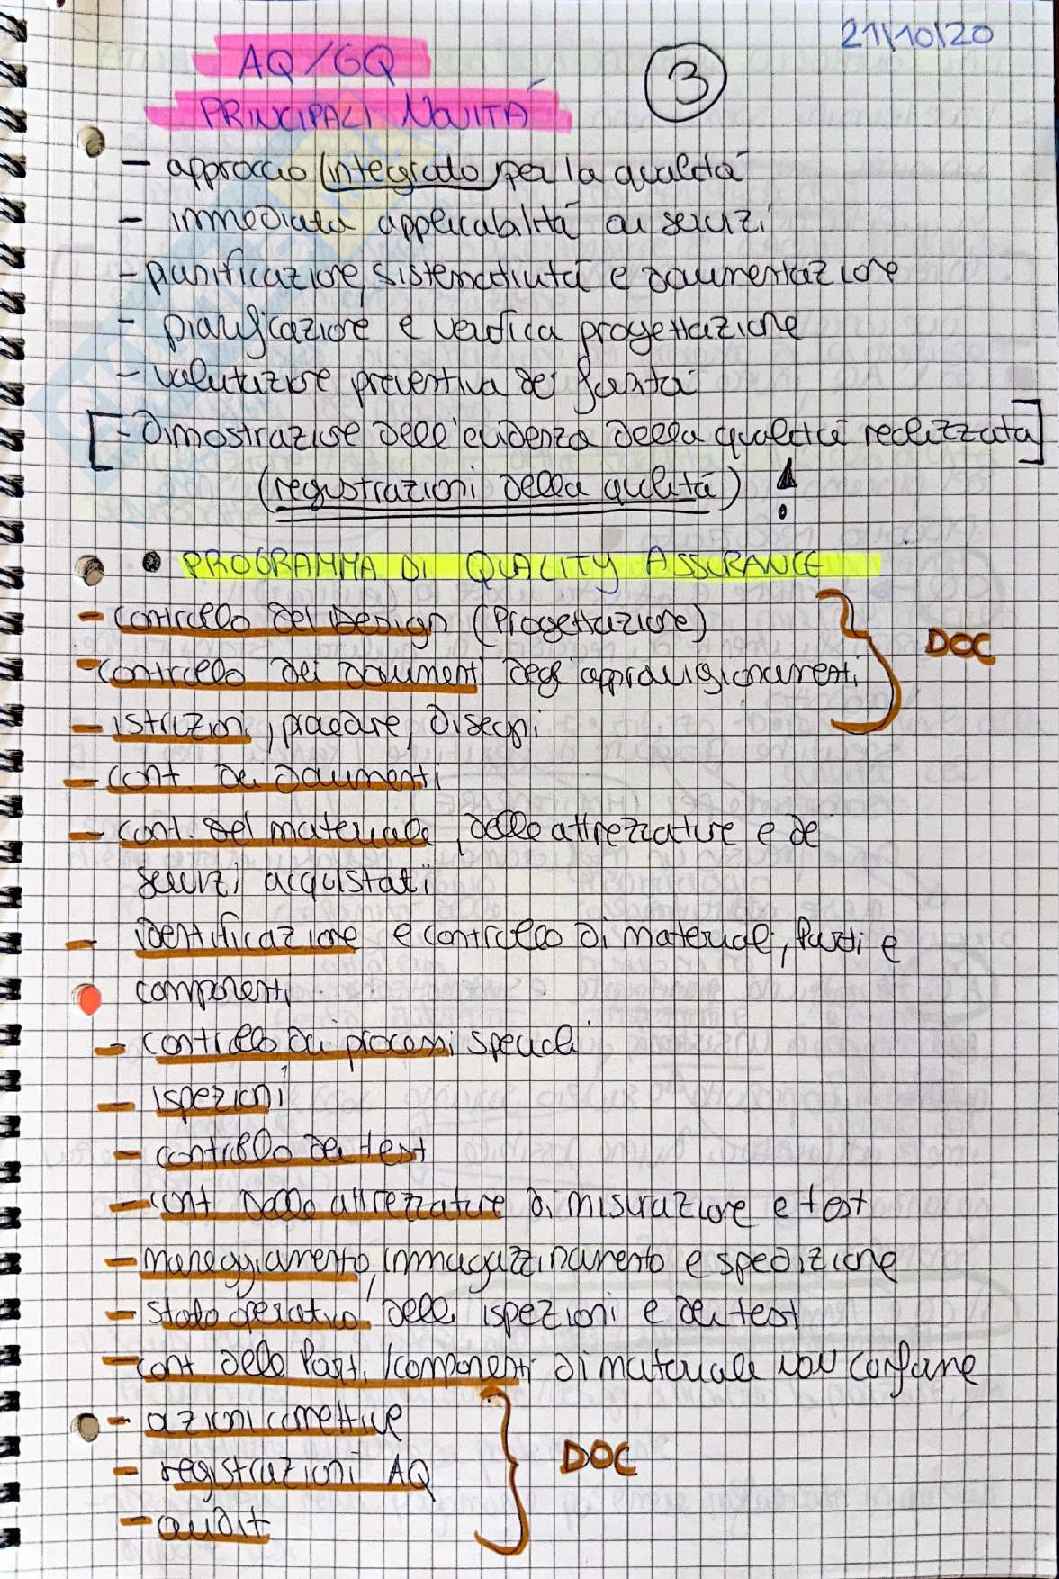 21/10/20
AQ/GQ
3
PRINCIPALI NOVITÀ
- approccio integrato per la qualità
- immediata applicabilità ai servizi
- pianificazione, sistematicità e documentazione
- pianificazione e verifica progettazione
- valutazione preventiva dei fornitori
[- Dimostrazione dell'evidenza della qualità realizzata]
(registrazioni della qualità) !
• PROGRAMMA DI QUALITY ASSURANCE
- controllo del Design (Progettazione)
DOC
- controllo dei documenti degli approvvigionamenti
- istruzioni, procedure, disegni
- cont. dei documenti
- cont. del materiale, delle attrezzature e dei
servizi acquistati
- identificazione e controllo di materiale, parti e
componenti
- controllo dei processi speciali
- ispezioni
- controllo dei test
- cont delle attrezzature di misurazione e test
- maneggiamento, immagazzinamento e spedizione
- stato operativo delle ispezioni e dei test
- cont delle Parti /componenti di materiale non conforme
- azioni correttive
DOC
- registrazioni AQ
- audit